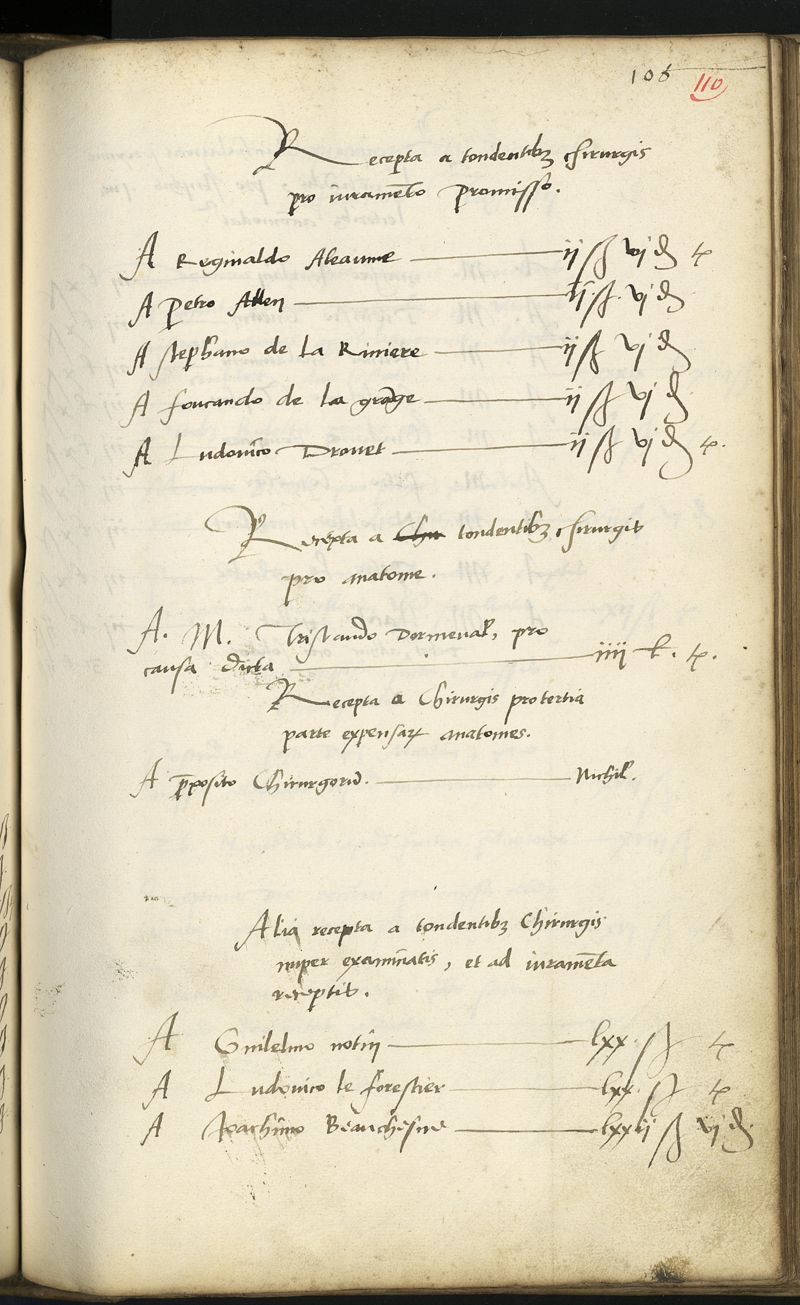 108 110
Recepta a tondentibꝫ chirurgis
pro iuramēto promisso.
A Reginaldo Aleaume ij ß vj d t
A Petro Allen ij ß vj d
A stephano de la Riuiere ij ß vj d
A foucando de la grāge ij ß vj d
A Ludouico Drouet ij ß vj d t.
Recepta a Chir tondentibꝫ chirurgis
pro anatome.
A. M. Tristando Dormeual, pro
causa dicta iiij ł. t.
Recepta a Chirurgis pro tertia
parte expensaꝝ anatomes.
A p̄posito Chirurgorū. Nichil.
Alia recepta a tondentibꝫ Chirurgis
nuper examinatis, et ad iuramēta
receptis.
A Guilelmo notin lxx. ß t
A Ludouico le forestier lxx. ß t
A Joachimo Beauchesne lxxij ß vj d